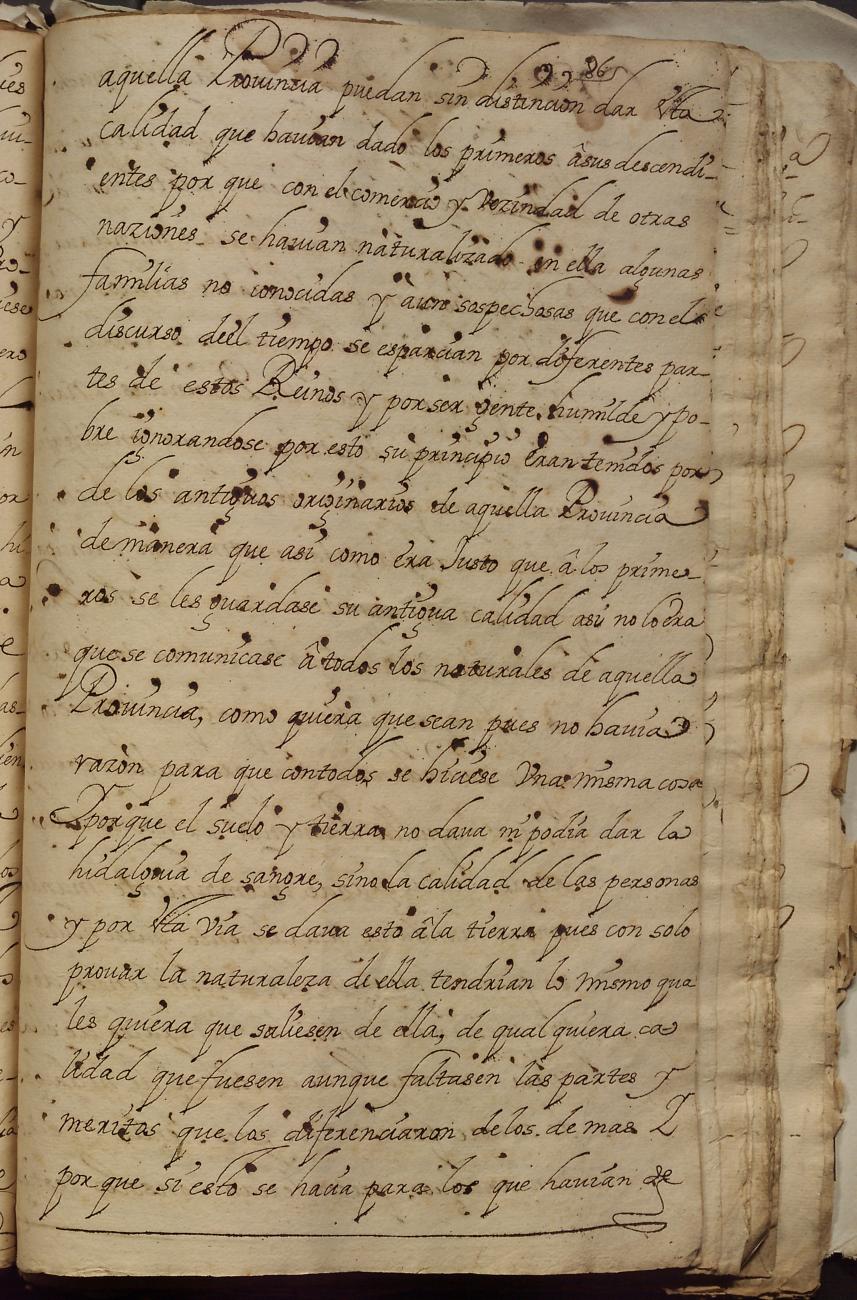 86
aquella Provincia puedan sin distincion dar esta
calidad que havian dado los primeros â sus descendi-
entes por que con el comercio y Vezindad de otras
naziones se havian naturalizado en ella algunas
familias no conocidas y aun sospechosas que con el
discurso deel tiempo se esparcian por diferentes par-
tes de estos Reinos y por ser gente humilde y po-
bre ignorandose por esto su principio eran tenidos por
de los antiguos originarios de aquella Provincia
de manera que asi como era Justo que â los prime-
ros se les guardase su antigua calidad asi no lo era
que se comunicase â todos los naturales de aquella
Provincia, como quiera que sean pues no havia
razon para que con todos se hiciese Vna misma cosa
Y porque el suelo y tierra no dava ni podia dar la
hidalguia de sangre, sino la calidad de las personas
y por esta via se dava esto â la tierra pues con solo
provar la naturaleza de ella tendrian lo mismo qua
les quiera que saliesen de ella, de qualquiera ca
lidad que fuesen aunque faltasen las partes y
meritos que los diferenciaron de los de mas Y
por que si esto se hacia para los que havian de